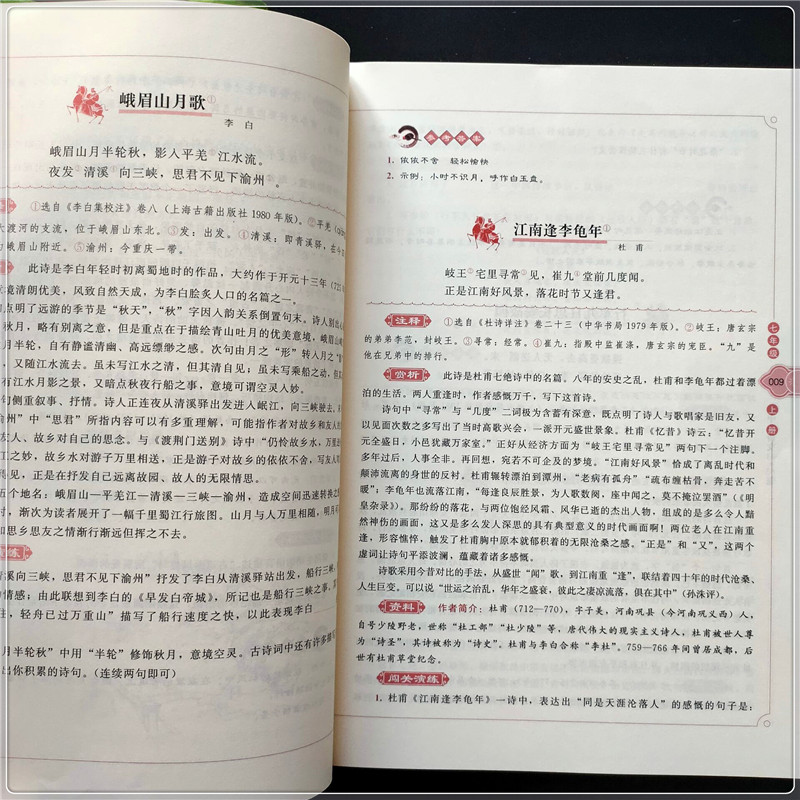 峨眉山月歌①
李白
峨眉山月半轮秋，影入平羌 江水流。
夜发 清溪 向三峡，思君不见下渝州 。
①选自《李白集校注》卷八（上海古籍出版社 1980 年版）。②平羌
大渡河的支流，位于峨眉山东北。③发：出发。④清溪：即青溪驿，在今
峨眉山附近。⑤渝州：今重庆一带。
此诗是李白年轻时初离蜀地时的作品，大约作于开元十三年
意境清朗优美，风致自然天成，为李白脍炙人口的名篇之一。
点明了远游的季节是“秋天”，“秋”字因入韵关系倒置句末。诗人
秋月，略有别离之意，但是重点在于描绘青山吐月的优美意境，
半月半轮，自有静谧清幽、高远缥缈之感。次句由月之“形”转入月之
，又随江水流去。虽未写江水之清，但其清自见；虽未写乘船之动，但
江水月影之景，又暗点秋夜行船之事，意境可谓空灵入妙。
侧重叙事、抒情。诗人正连夜从清溪驿出发进入岷江，向三峡驶去，
州”中“思君”所指内容可以有多重理解，可能指作者对故乡和友人
友人、故乡对自己的思念。与《渡荆门送别》诗中“仍怜故乡水，万里
江之妙，故乡水对游子万里相送，正是游子对故乡的依依不舍，写友人
见，正是在抒发自己远离故园、故人的无限情思。
五个地名：峨眉山—平羌江—清溪—三峡—渝州，造成空间迅速转换之
时，渐次为读者展开了一幅千里蜀江行旅图。山月与人万里相随，明月
和思乡思友之情渐行渐远但挥之不去。
演练
清溪向三峡，思君不见下渝州”抒发了李白从清溪驿站出发，船行三峡，
的情感；由此联想到李白的《早发白帝城》，所记也是船行三峡之事、
住，轻舟已过万重山”描写了船行速度之快，以此表现李白
月半轮秋”中用“半轮”修饰秋月，意境空灵。古诗词中还有许多
出你积累的诗句。（连续两句即可）
参考答案
1. 依依不舍 轻松愉快
2. 示例：小时不识月，呼作白玉盘。
江南逢李龟年①
杜甫
岐王②宅里寻常③见，崔九④堂前几度闻。
正是江南好风景，落花时节又逢君。
注释 ①选自《杜诗详注》卷二十三（中华书局 1979 年版）。②岐王：唐玄宗
的弟弟李范，封岐王。③寻常：经常。④崔九：指殿中监崔涤，唐玄宗的宠臣。“九”是
他在兄弟中的排行。
赏析 此诗是杜甫七绝诗中的名篇。八年的安史之乱，杜甫和李龟年都过着漂
泊的生活。两人重逢时，作者感慨万千，写下这首诗。
诗句中“寻常”与“几度”二词极为含蓄有深意，既点明了诗人与歌唱家是旧友，又
以见面次数之多写出了当时高歌兴会，一派开元盛世景象。杜甫《忆昔》诗云：“忆昔开
元全盛日，小邑犹藏万家室。”正好从经济方面为“岐王宅里寻常见”两句下一个注脚。
多年过后，人事全非。再回想，宛若不可企及的梦境。“江南好风景”恰成了离乱时代和
颠沛流离的身世的反衬。杜甫辗转漂泊到潭州，“老病有孤舟”“疏布缠枯骨，奔走苦不
暖”；李龟年也流落江南，“每逢良辰胜景，为人歌数阕，座中闻之，莫不掩泣罢酒”（《明
皇杂录》）。那纷纷的落花，与两位饱经风霜、风华已逝的杰出人物，组成的是多么令人黯
然神伤的画面，这又是多么发人深思的具有典型意义的时代画面啊！两位老人在江南重
逢，形容憔悴，触发了杜甫胸中原本就郁积着的无限沧桑之感。“正是”和“又”，这两个
虚词让诗句平添波澜，蕴藏着诸多感慨。
诗歌采用今昔对比的手法，从盛世“闻”歌，到江南重“逢”，联结着四十年的时代沧桑、
人生巨变。可以说“世运之治乱，华年之盛衰，彼此之凄凉流落，俱在其中”（孙洙评）。
资料 作者简介：杜甫（712—770），字子美，河南巩县（今河南巩义西）人，
自号少陵野老，世称“杜工部”“杜少陵”等，唐代伟大的现实主义诗人，杜甫被世人尊
为“诗圣”，其诗被称为“诗史”。杜甫与李白合称“李杜”。759—766 年间曾居成都，后
世有杜甫草堂纪念。
闯关演练
1. 杜甫《江南逢李龟年》一诗中，表达出“同是天涯沦落人”的感慨的句子是：
七年级
009
上册